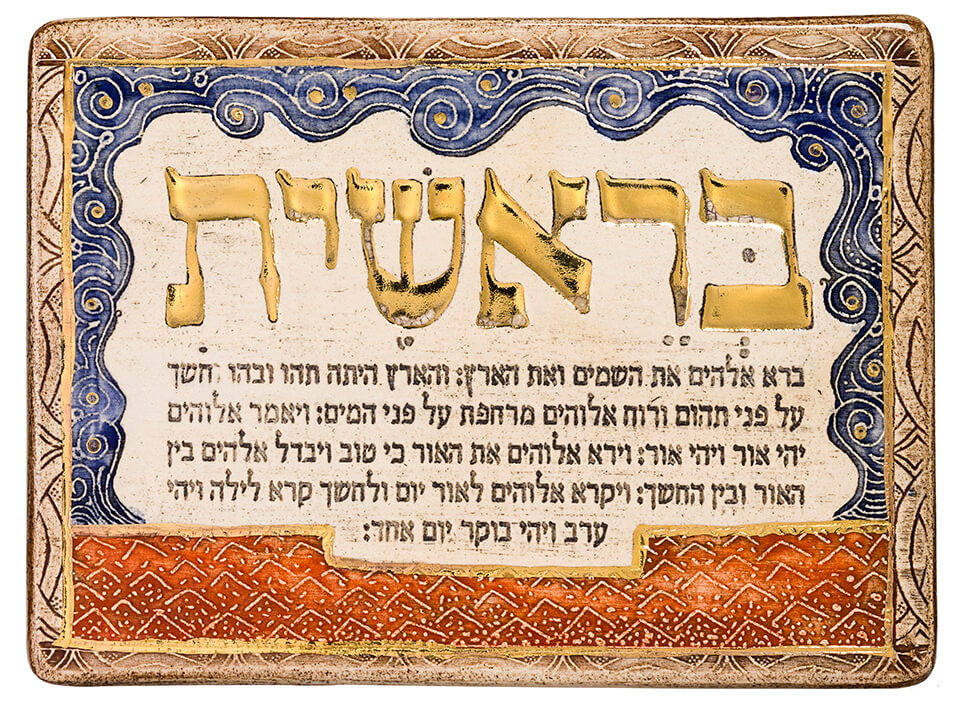 בְּרֵאשִׁית
ברא אלהים את השמים ואת הארץ: והארץ היתה תהו ובהו חשך
על פני תהום ורוח אלוהים מרחפת על פני המים: ויאמר אלוהים
יהי אור ויהי אור: וירא אלוהים את האור כי טוב ויבדל אלהים בין
האור ובין החשך: ויקרא אלוהים לאור יום ולחשך קרא לילה ויהי
ערב ויהי בוקר יום אחד: